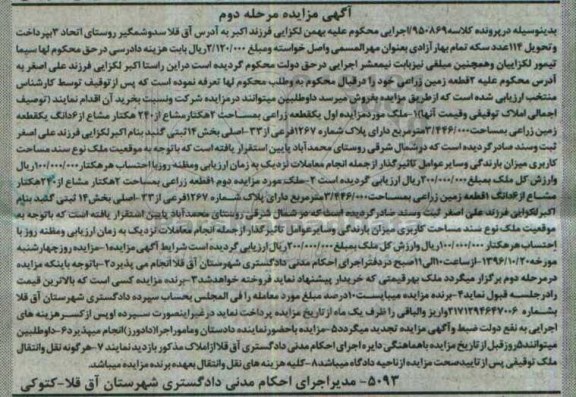 آگهی مزایده مرحله دوم
بدینوسیله درپرونده کلاسه۹۵۰۸۶۹/اجرایی محکوم علیه بهمن لکزایی فرزند اکبر به آدرس آق قلا سدوشمگیر روستای اتحاد ۳بپرداخت
و تحویل ۱۱۴عدد سکه تمام بهار آزادی بعنوان مهرالمسمی واصل خواسته ومبلغ ۲/۱۲۰/۰۰۰ریال بابت هزینه دادرسی در حق محکوم لها سیما
تیمور لکزاییان وهمچنین مبلغی نیزبابت نیمعشر اجرایی درحق دولت محکوم گردیده است دراین راستا اکبر لکزایی فرزند علی اصغر به
آدرس محکوم علیه ۲قطعه زمین زراعی خود را درقبال محکوم به وطلب محکوم لها تعرفه نموده است که پس ازتوقیف توسط کارشناس
منتخب ارزیابی شده است که ازطریق مزایده بفروش میرسد داوطلبین میتوانند درمزایده شرکت ونسبت بخرید آن اقدام نمایند (توصیف
اجمالی املاک توقیفی وقیمت آنها)۱-ملک موردمزایده اول یکقطعه زراعی بمساحت ۲هکتارمشاع از۲۴۰ هکتار مشاع از ۶دانگ یکقطعه
زمین زراعی بمساحت۳/۴۴۶/۰۰۰مترمربع دارای پلاک شماره ۱۲۶۷فرعی از۳۳-اصلی بخش ۱۴ثبتی گنبد بنام اکبر لکزایی فرزند علی اصغر
ثبت وسند صادر گردیده است که درشمال شرقی روستای محمدآباد پایین استقرار یافته است که باتوجه به موقعیت ملک نوع سند مساحت
کاربری میزان بارندگی وسایر عوامل تاثیر گذار از جمله انجام معاملات نزدیک به زمان ارزیابی ومظنه روزبا احتساب هرهکتار ۱۰۰/۰۰۰/۰۰۰ریال
وارزش کل ملک بمبلغ ۲۰۰/۰۰۰/۰۰۰ ریال ارزیابی گردیده است ۲-ملک مورد مزایده دوم ۱قطعه زراعی بمساحت ۲هکتار مشاع از۲۴۰هکتار
مشاع از ۶دانگ ۱قطعه زمین زراعی بمساحت۳/۴۴۶/۰۰۰مترمربع دارای پلاک شماره ۱۲۶۷فرعی از۳۳-اصلی بخش ۱۴ ثبتی گنبد بنام
اکبرلکزایی فرزند علی اصغر ثبت وسند صادرگردیده است که در شمال شرقی روستای محمدآباد پایین استقرار یافته است که باتوجه به
موقعیت ملک نوع سند مساحت کاربری میزان بارندگی وسایرعوامل تاثیر گذار ازجمله انجام معاملات نزدیک به زمان ارزیابی ومظنه روز با
احتساب هرهکتار ۱۰۰/۰۰۰/۰۰۰ریال وارزش کل ملک بمبلغ ۲۰۰/۰۰۰/۰۰۰ریال ارزیابی گردیده است شرایط آگهی مزایده۱-مزایده روزچهارشنبه
مورخه۱۳۹۶/۱۰/۲۰ ازساعت۱۰الی۱۱صبح دردفتراجرای احکام مدنی دادگستری شهرستان آق قلا انجام می پذیرد۲-باتوجه باینکه مزایده
درمرحله دوم برگزار میگردد ملک بهرقیمتی که خریدار پیشنهاد نماید فروخته خواهدشد۳-برنده مزایده کسی است که بالاترین قیمت
رادرجلسه قبول نماید۴-برنده مزایده میبایست۱۰درصد مبلغ مورد معامله را فی المجلس بحساب سپرده دادگستری شهرستان آق قلا
بشماره ۲۱۷۱۲۹۴۶۴۷۰۰۶واریز والباقی را ظرف یک ماه از تاریخ مزایده پرداخت نماید در غیراینصورت سپرده اوپس از کسر هزینه های
اجرایی به نفع دولت ضبط وآگهی مزایده تجدید میگردد۵-مزایده باحضورنماینده دادستان وماموراجرا(دادورز)انجام میپذیرد۶-داوطلبین
میتوانند۵روزقبل از تاریخ مزایده باهماهنگی دایره اجرای احکام مدنی دادگستری آق قلا ازاملاک مذکور بازدید نمایند ۷-هرگونه نقل وانتقال
ملک توقیفی پس از تاییدصحت مزایده ازناحیه دادگاه میباشد۸-کلیه هزینه های نقل وانتقال بعهده برنده مزایده میباشد.
۵۰۹۳- مدیراجرای احکام مدنی دادگستری شهرستان آق قلا-کتوکی